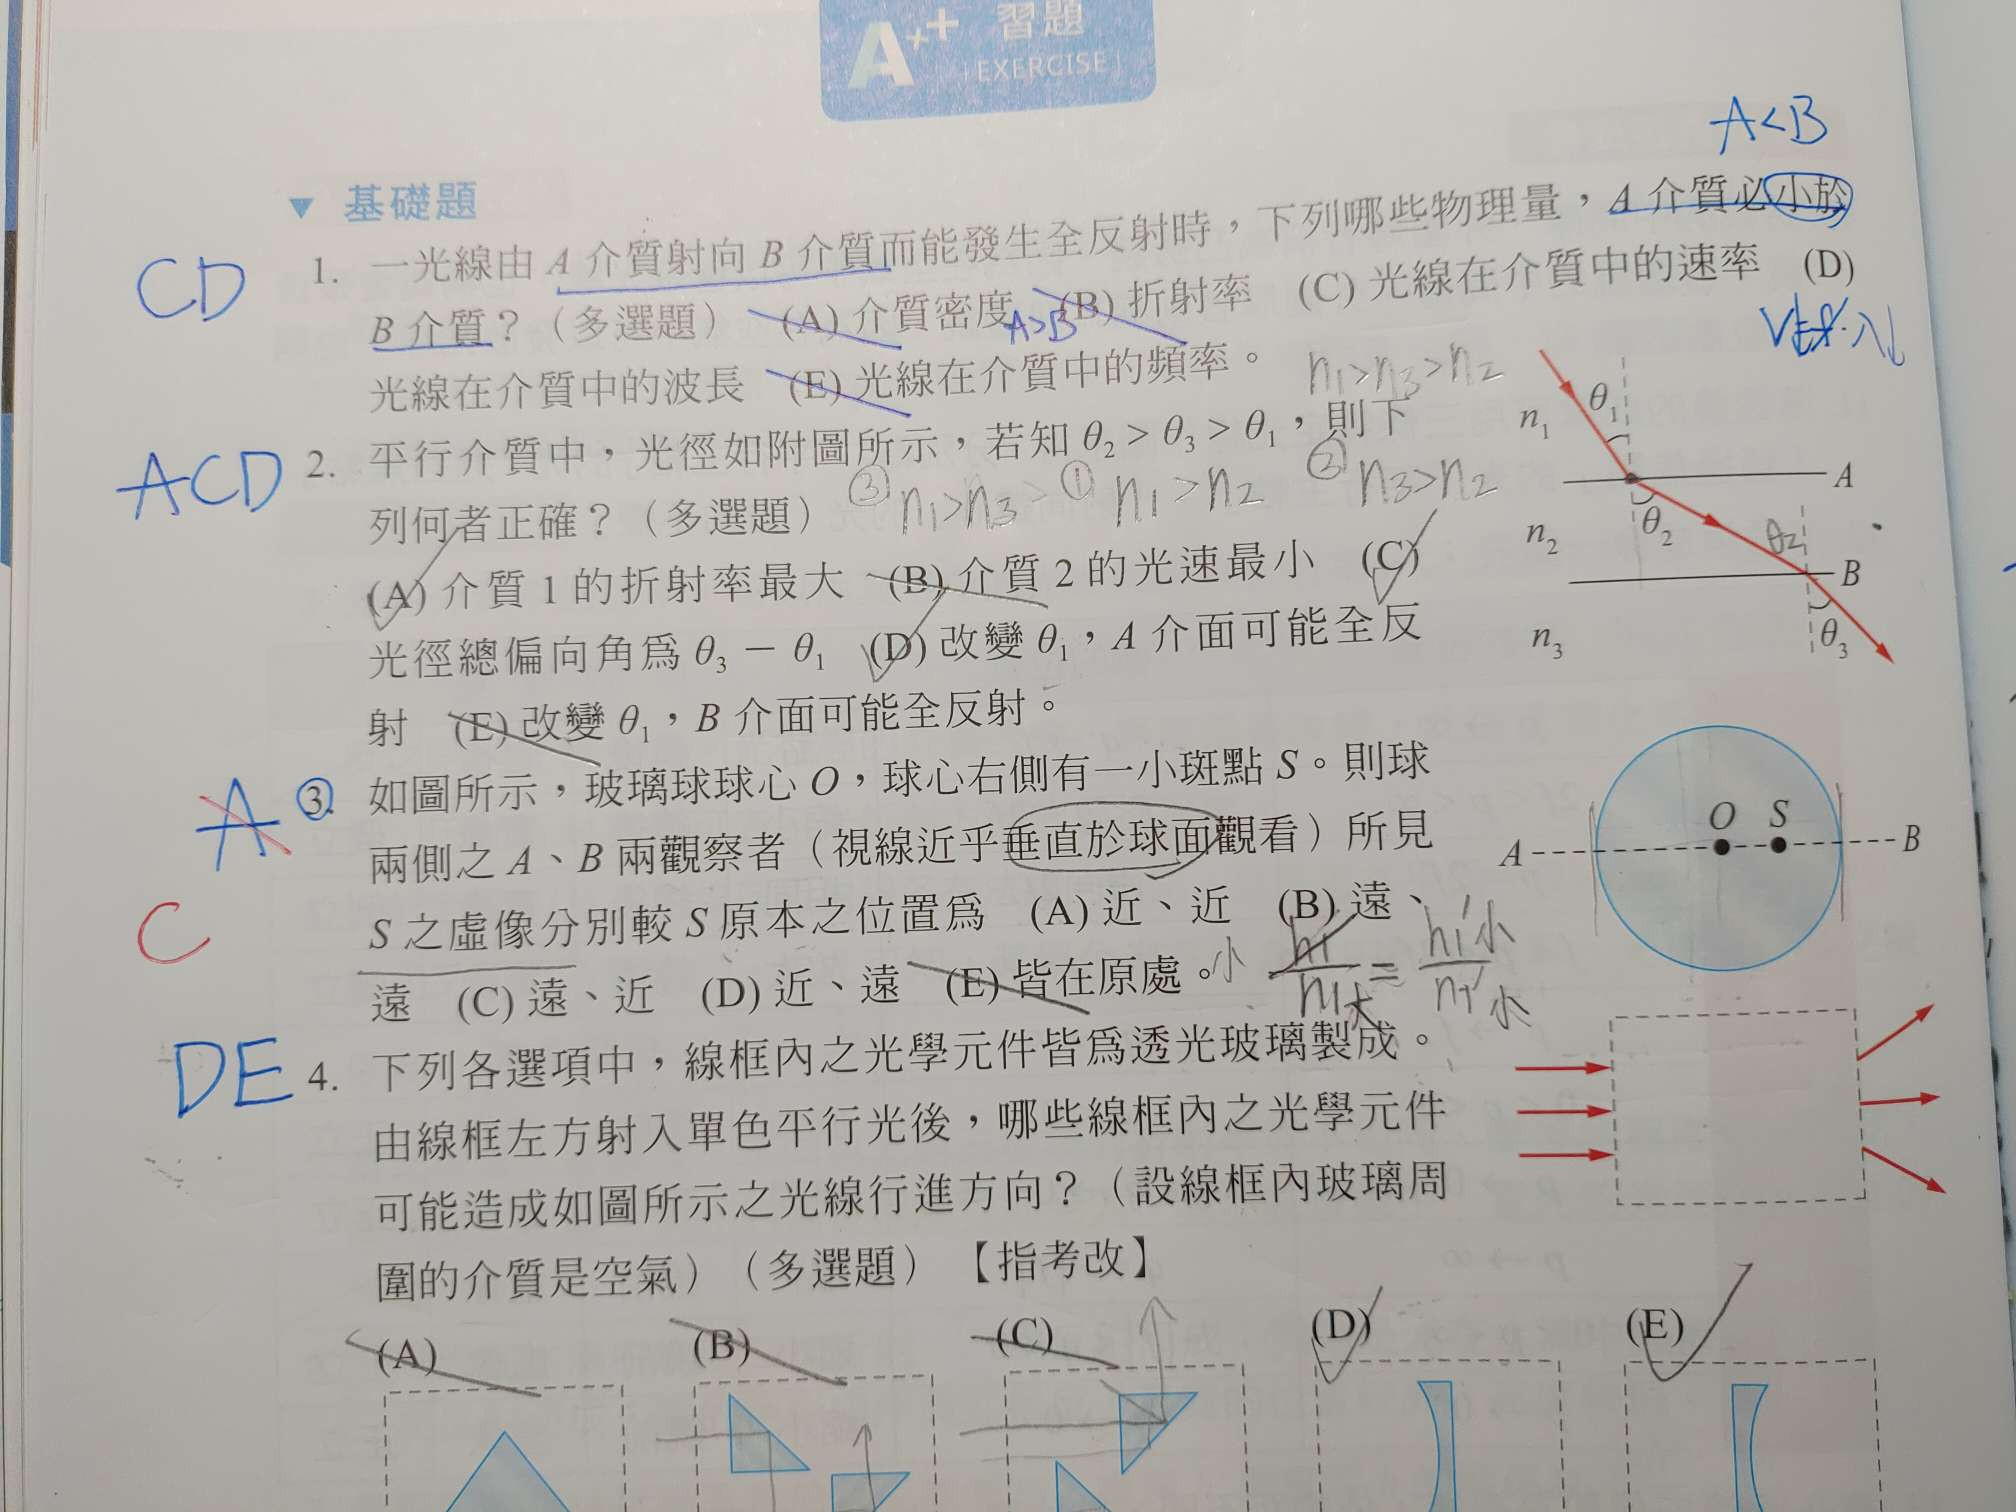 A++ 習題
EXERCISE
A<B
▼ 基礎題
CD
1. 一光線由 A 介質射向 B 介質而能發生全反射時，下列哪些物理量，A 介質必小於
B 介質？（多選題） (A) 介質密度 (B) 折射率 (C) 光線在介質中的速率 (D)
A>B
光線在介質中的波長 (E) 光線在介質中的頻率。
n1>n3>n2
ACD
2. 平行介質中，光徑如附圖所示，若知 θ2 > θ3 > θ1，則下
列何者正確？（多選題）
③ n1>n3 ① n1>n2 ② n3>n2
(A) 介質 1 的折射率最大 (B) 介質 2 的光速最小 (C)
光徑總偏向角為 θ3 − θ1 (D) 改變 θ1，A 介面可能全反
射 (E) 改變 θ1，B 介面可能全反射。
n1
θ1
A
n2
θ2
θ2
B
n3
θ3
A
C
3. 如圖所示，玻璃球球心 O，球心右側有一小斑點 S。則球
兩側之 A、B 兩觀察者（視線近乎垂直於球面觀看）所見
S 之虛像分別較 S 原本之位置為 (A) 近、近 (B) 遠、
遠 (C) 遠、近 (D) 近、遠 (E) 皆在原處。
A
O
S
B
DE
4. 下列各選項中，線框內之光學元件皆為透光玻璃製成。
由線框左方射入單色平行光後，哪些線框內之光學元件
可能造成如圖所示之光線行進方向？（設線框內玻璃周
圍的介質是空氣）（多選題）【指考改】
(A) (B) (C) (D) (E)